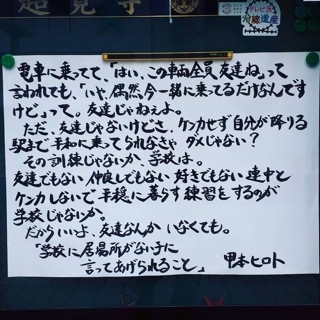 超覚寺
電車に乗ってて、「はい、この車両全員友達ね」って
言われても、「いや、偶然今一緒に乗ってるだけなんです
けど」って。友達じゃねぇよ。
ただ、友達じゃないけどさ、ケンカせず自分が降りる
駅まで平和に乗ってられなきゃダメじゃない?
その訓練じゃないか、学校は。
友達でもない仲良しでもない好きでもない連中と
ケンカしないで平穏に暮らす練習をするのが
学校じゃないか。
だからいいよ、友達なんかいなくても。
「学校に居場所がない子に
言ってあげられること」 甲本ヒロト